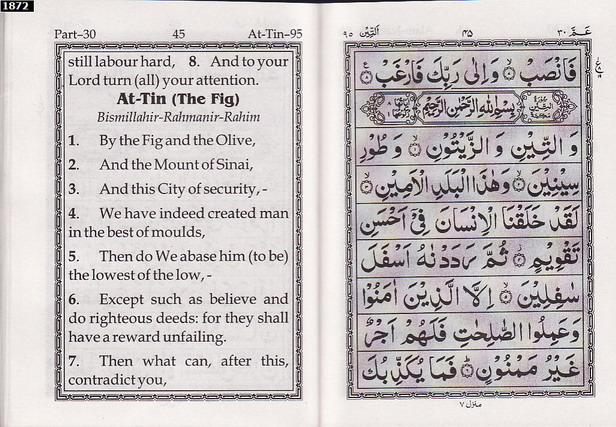 1872
Part–30 45 At-Tin–95
still labour hard, 8. And to your
Lord turn (all) your attention.
At-Tin (The Fig)
Bismillahir-Rahmanir-Rahim
1. By the Fig and the Olive,
2. And the Mount of Sinai,
3. And this City of security,-
4. We have indeed created man
in the best of moulds,
5. Then do We abase him (to be)
the lowest of the low,-
6. Except such as believe and
do righteous deeds: for they shall
have a reward unfailing.
7. Then what can, after this,
contradict you,
عَمّ ٣٠ ٤٥ اَلتِّيْن ٩٥
فَانْصَبْ ۞ وَاِلٰى رَبِّكَ فَارْغَبْ
بِسْمِ اللّٰهِ الرَّحْمٰنِ الرَّحِيْمِ
وَ التِّيْنِ وَ الزَّيْتُوْنِ ۞ وَ طُوْرِ
سِيْنِيْنَ ۞ وَهٰذَا الْبَلَدِ الْاَمِيْنِ ۞
لَقَدْ خَلَقْنَا الْاِنْسَانَ فِيْٓ اَحْسَنِ
تَقْوِيْمٍ ۞ ثُمَّ رَدَدْنٰهُ اَسْفَلَ
سٰفِلِيْنَ ۞ اِلَّا الَّذِيْنَ اٰمَنُوْا
وَعَمِلُوا الصّٰلِحٰتِ فَلَهُمْ اَجْرٌ
غَيْرُ مَمْنُوْنٍ ۞ فَمَا يُكَذِّبُكَ
منزل ٧